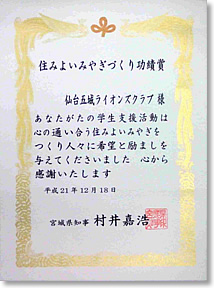 住みよいみやぎづくり功績賞
仙台五城ライオンズクラブ 様
あなたがたの学生支援活動は
心の通い合う住みよいみやぎを
つくり人々に希望と励ましを
与えてくださいました 心から
感謝いたします
平成21年12月18日
宮城県知事 村井嘉浩